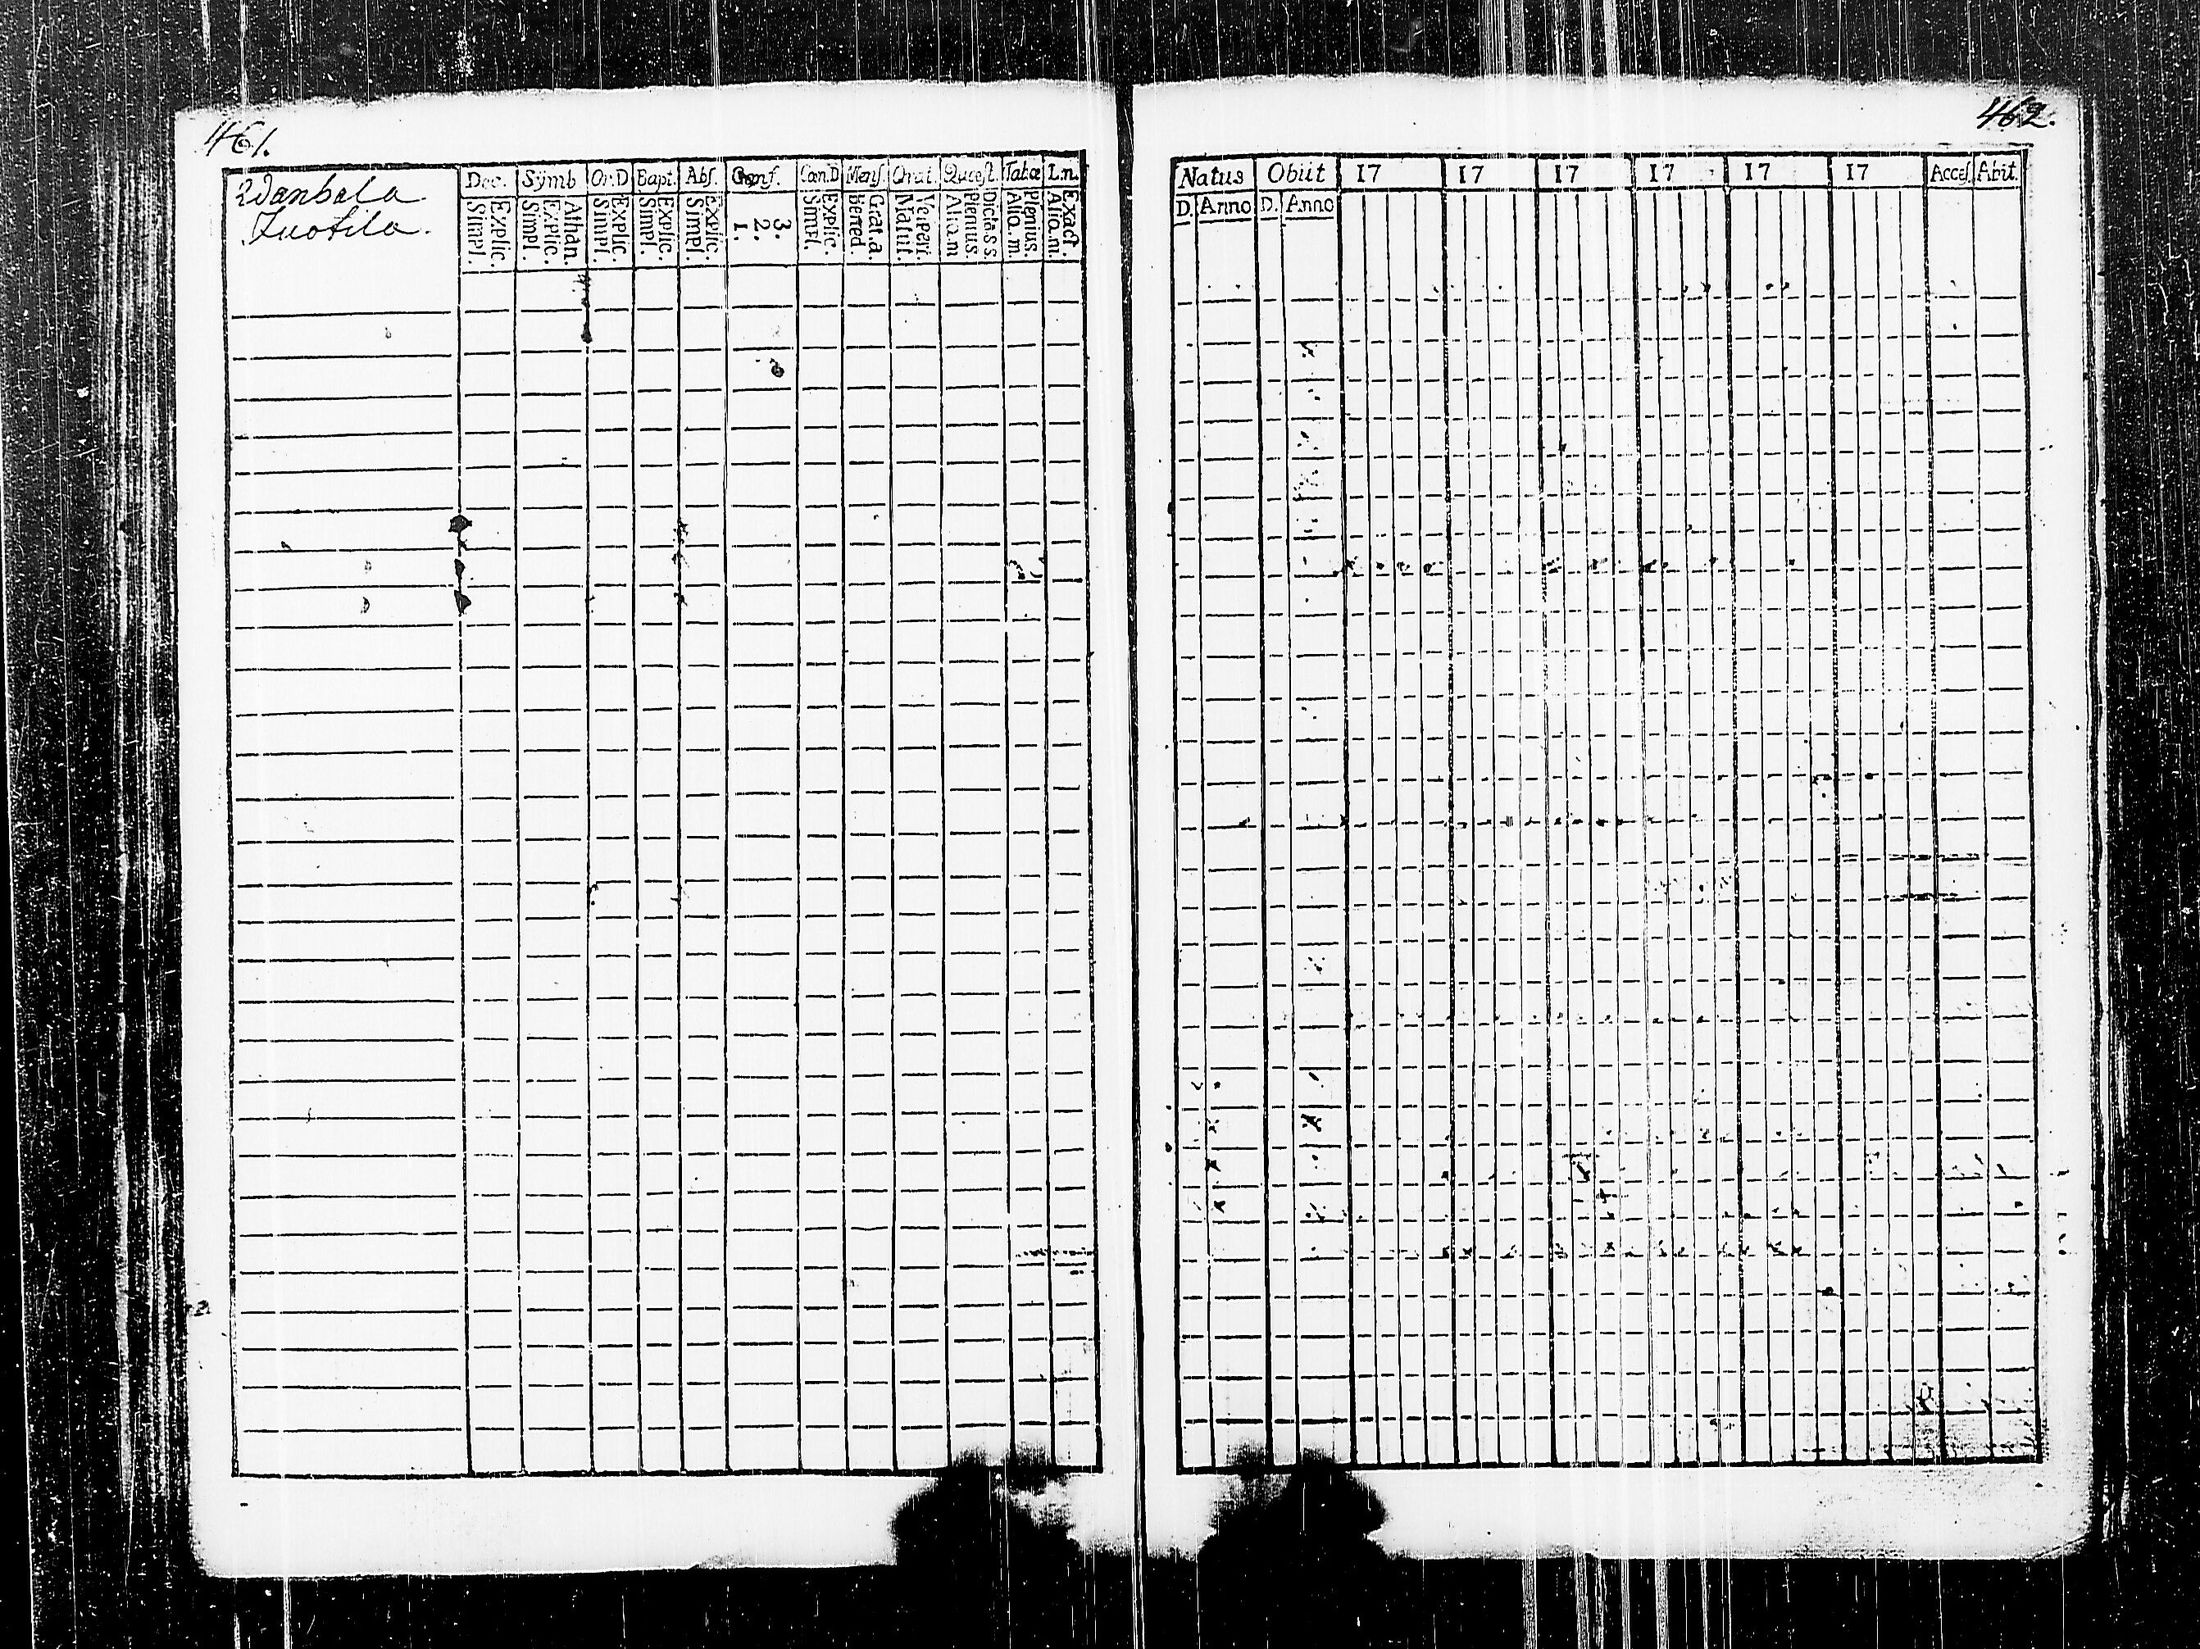 461.
Wanhala
Tuotila.
Dec. Symb Or.D Bapt. Abs. Conf. Cœn.D Mens. Orat. Quæst. Tabæ I.n.
Simpl. Explic. Simpl. Explic. Athan. Simpl. Explic. Simpl. Explic. Simpl. Explic. 1. 2. 3. Simpl. Explic. Bened. Grat.a. Matut. Vespert. Aliq.m Plenius. Dicta S S. Aliq.m. Plenius. Aliq.m. Exact.
462.
Natus Obiit 17 17 17 17 17 17 Acces. Abit.
D. Anno D. Anno